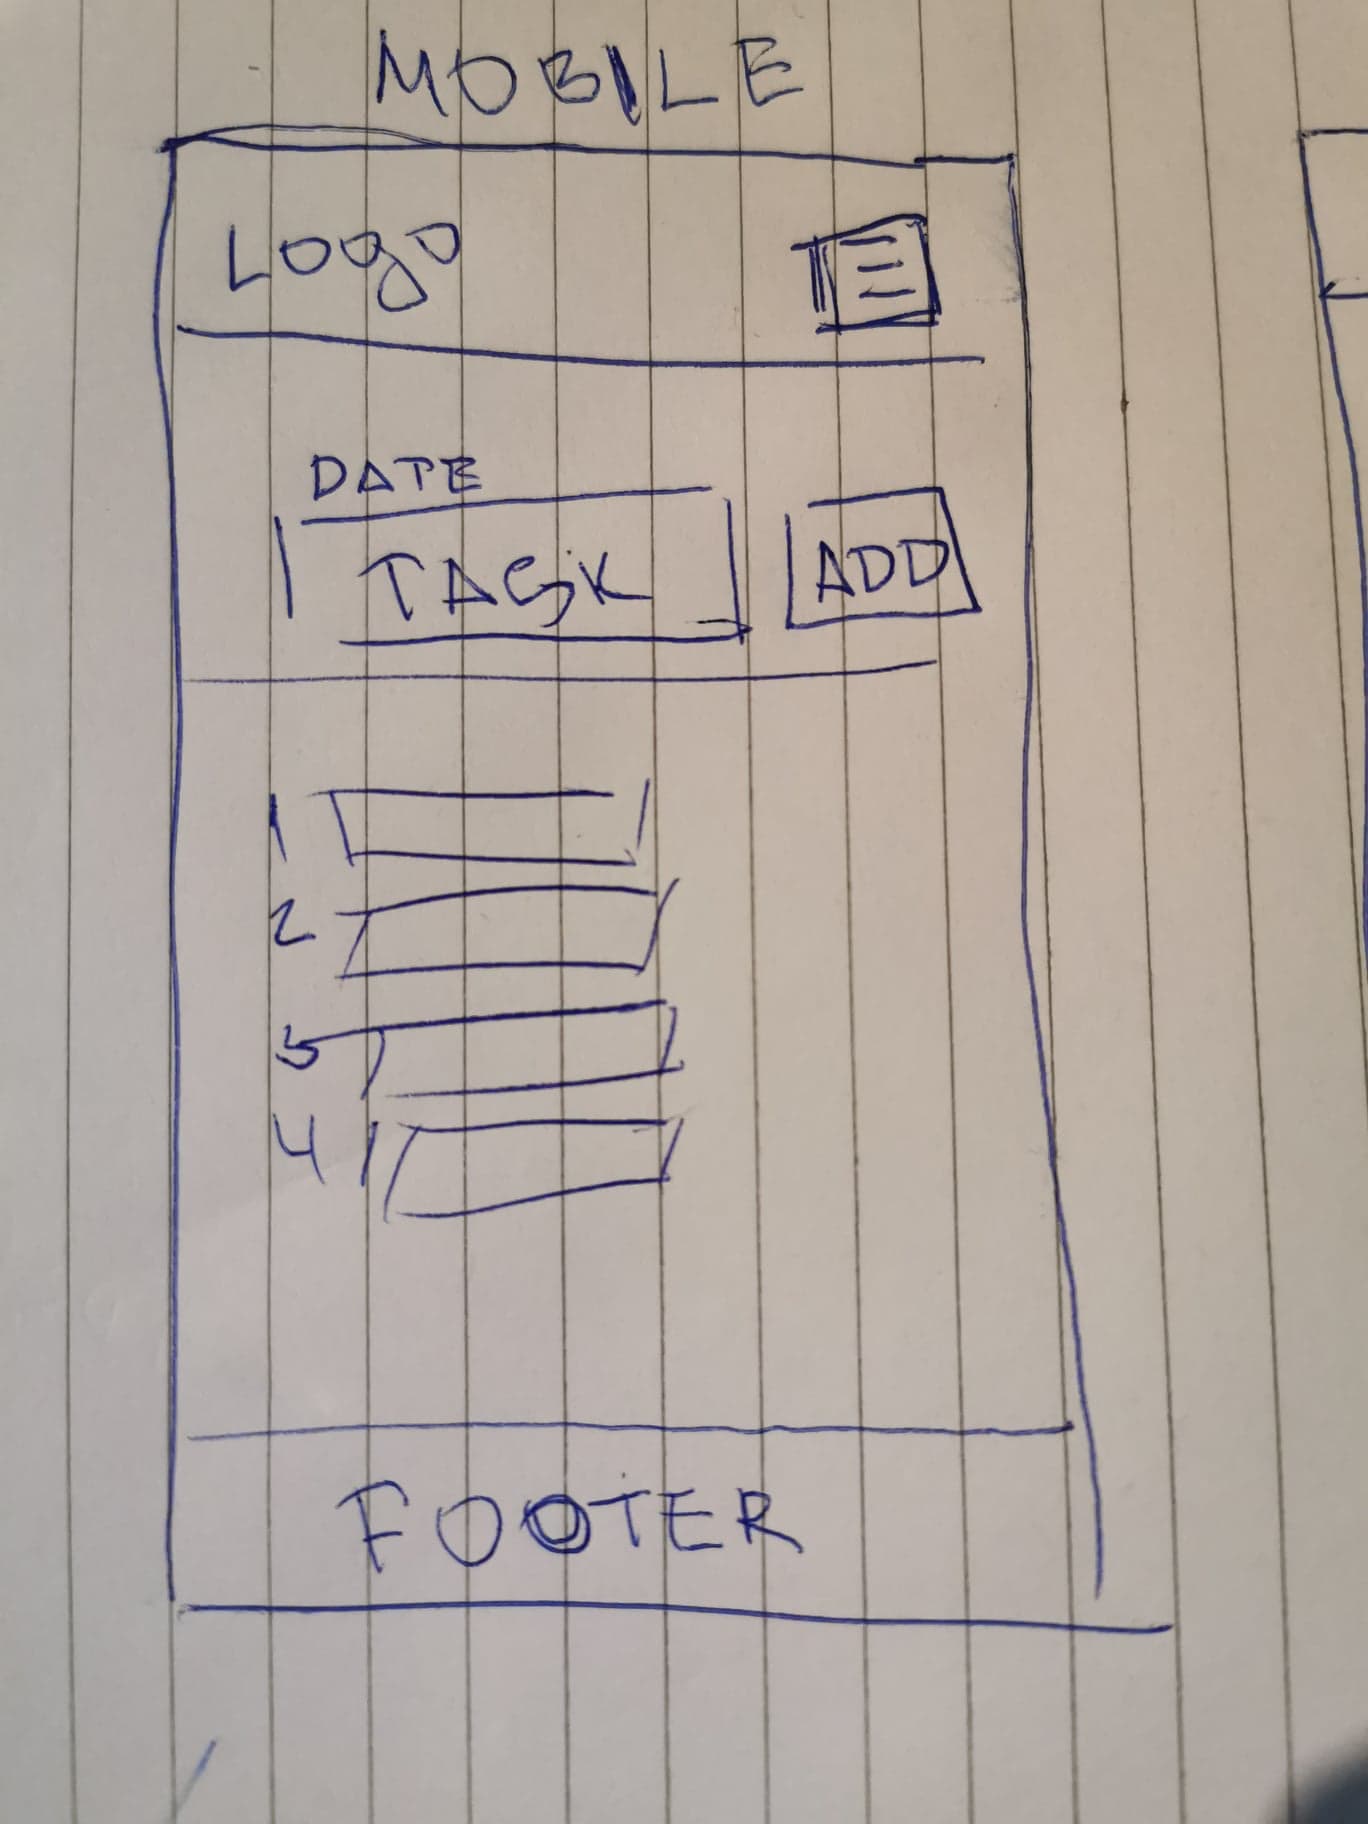 MOBILE
Logo
DATE
TASK
ADD
1
2
3
4
FOOTER